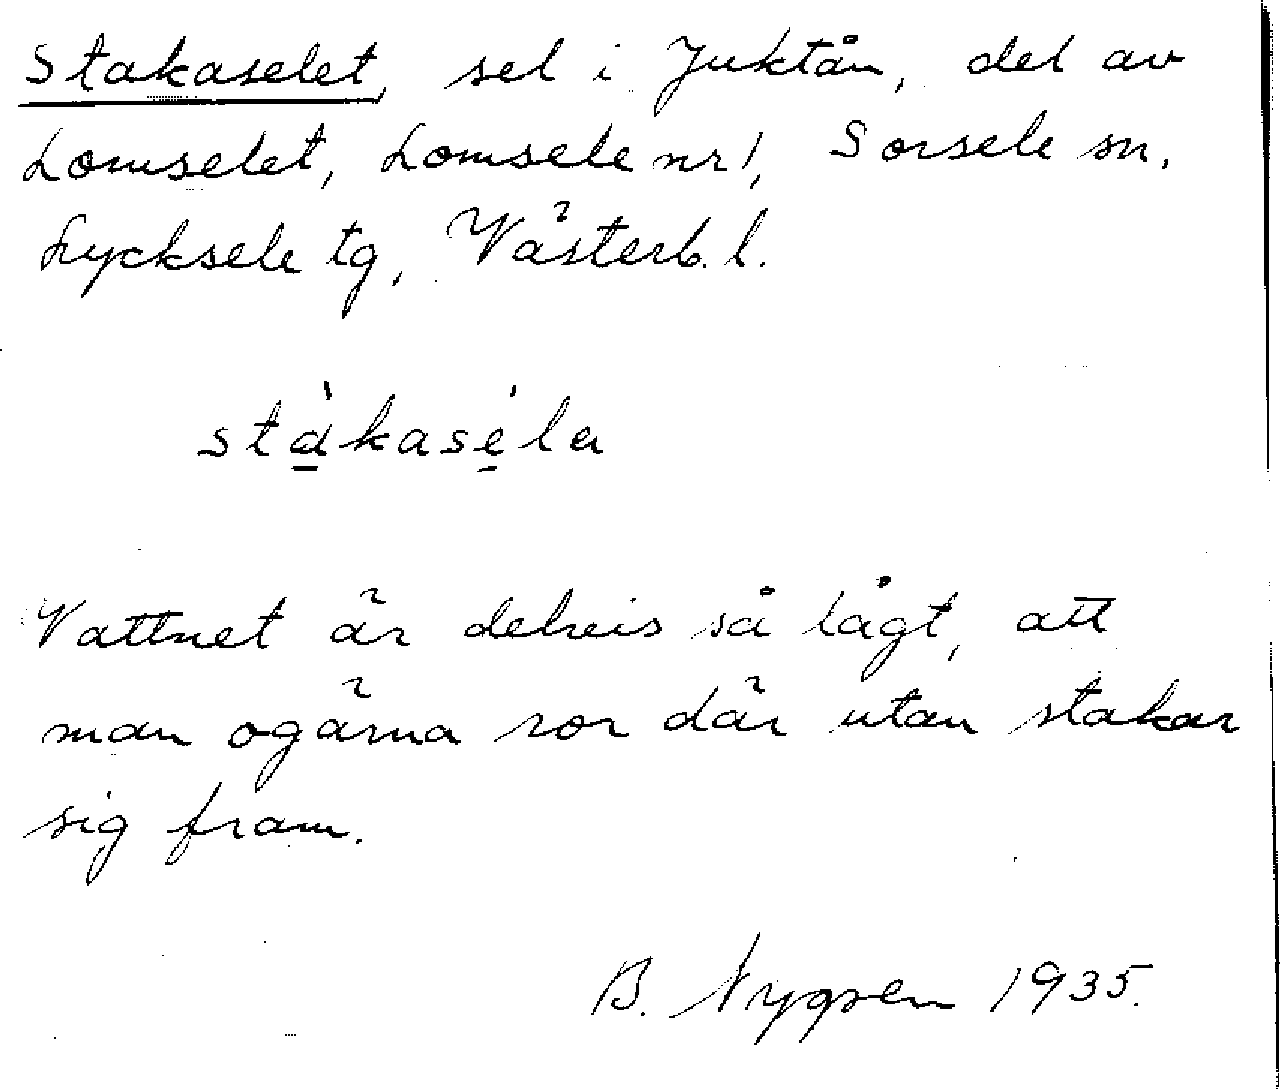 Stakaselet, sel i Juktån, del av
Lomselet, Lomsele nr 1, Sorsele sn.
Lycksele tg, Västerb. l.
stàkaséla
Vattnet är delvis så lågt, att
man ogärna ror där utan stakar
sig fram.
B. Nygren 1935.